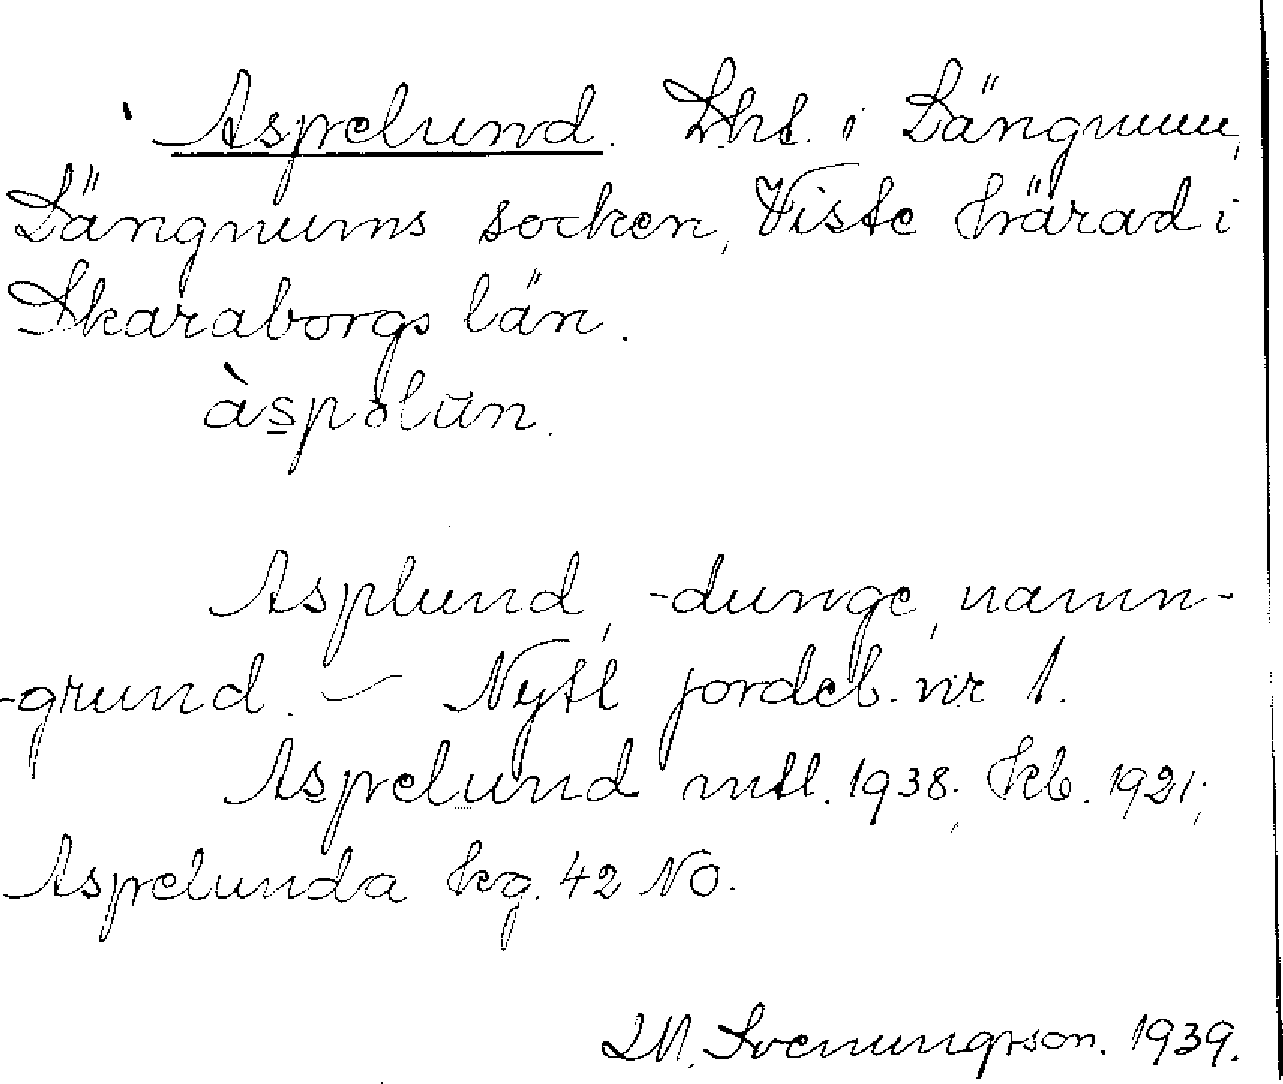 Aspelund. Lht. i Längnum,
Längnums socken, Viste härad i
Skaraborgs län.
àspəlūn.
Asplund, -dunge, namn-
-grund. – Nytt jordeb. nr 1.
Aspelund mtl. 1938; hkb. 1921;
Aspelunda kg. 42 NO.
M. Svenungsson. 1939.